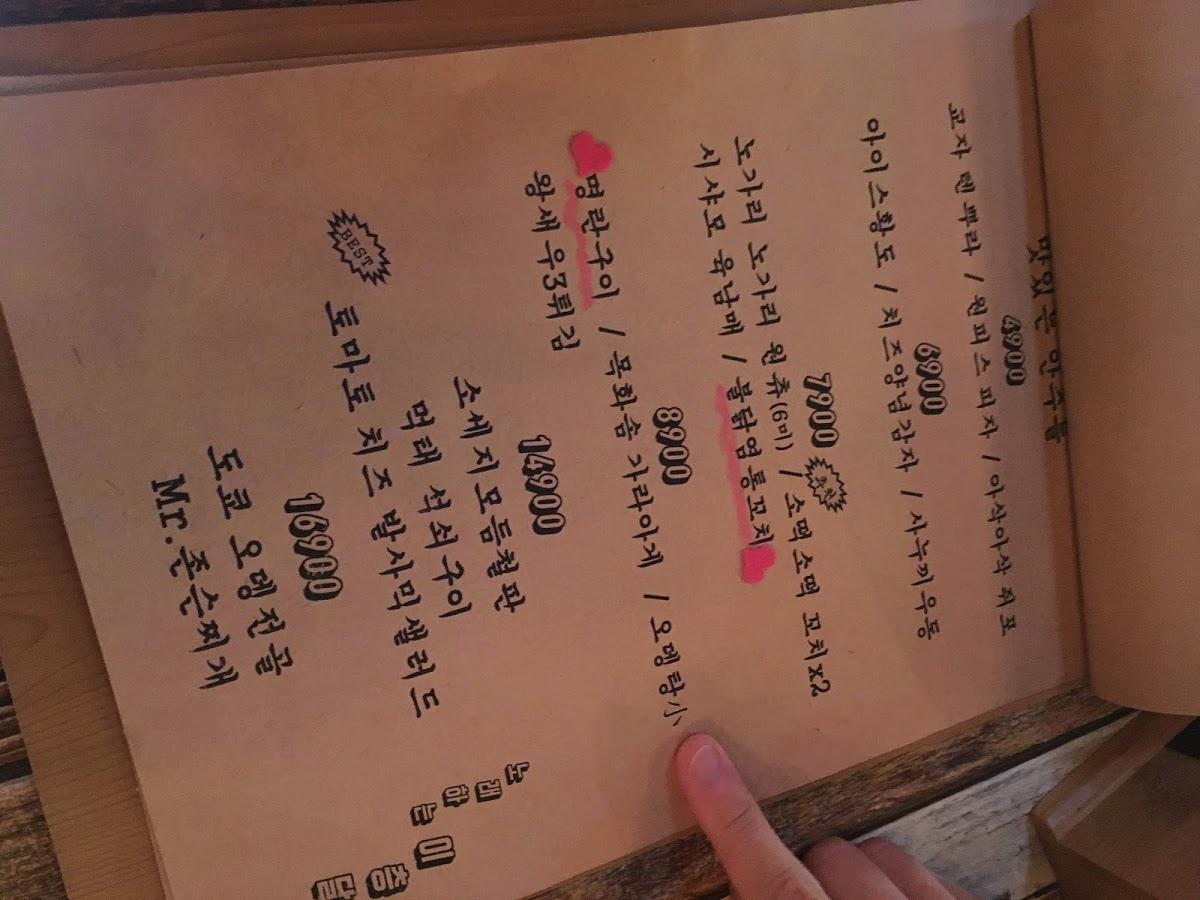 맛있는 안주들
4900
교자 텐뿌라 / 원피스피자 / 아삭아삭 쥐포
6900
아이스황도 / 치즈양념감자 / 사누끼우동
7900
노가리 노가리 원츄(6미) / 소떡소떡 꼬치x2
시샤모 육남매 / 불닭염통꼬치
8900
명란구이 / 목화솜 가라아게 / 오뎅탕小
왕새우3튀김
14900
소세지모듬철판
먹태 석쇠구이
BEST 토마토 치즈 발사믹샐러드
16900
도쿄 오뎅전골
Mr.존슨찌개
노래하는 이층달